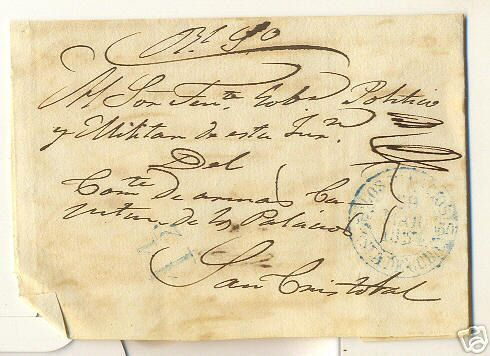 Rl So
Al Sor Tente Gobr Politico
y Militar de esta Jun.n
Del
Comte de armas Ca
de los Palacios
San Cristobal